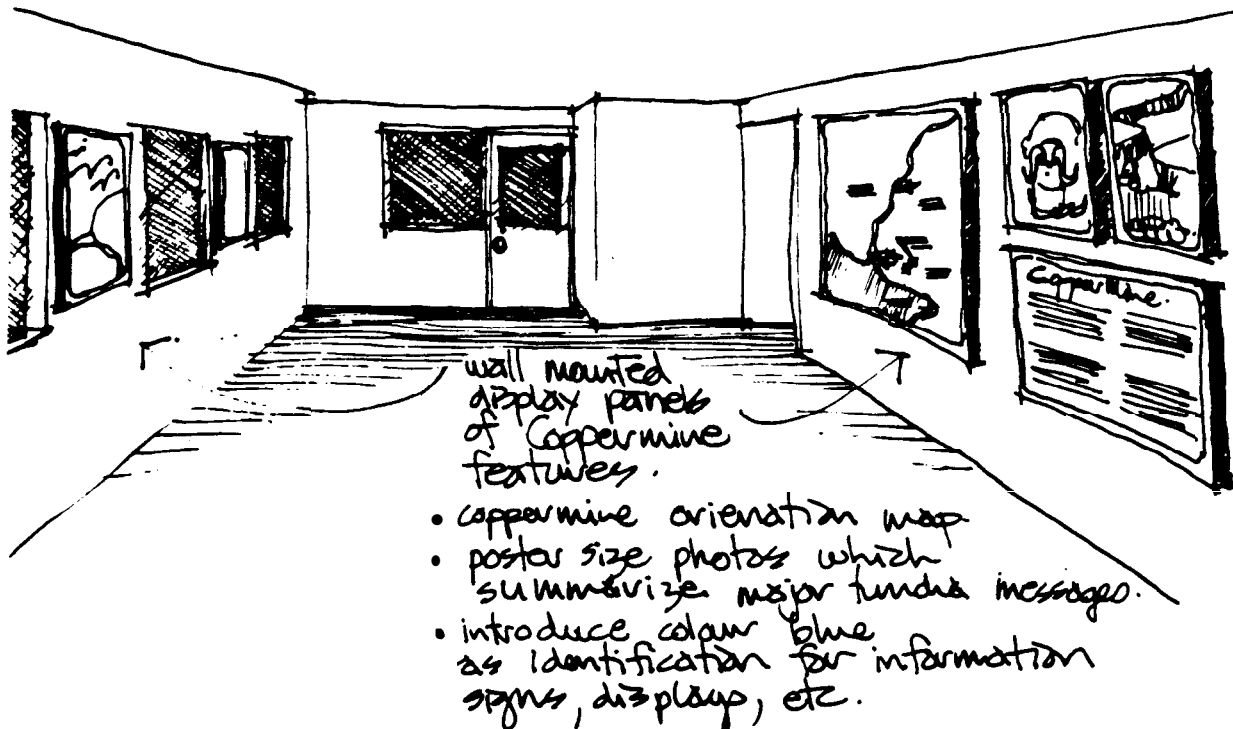 Coppermine.
wall mounted
display panels
of Coppermine
features.
• coppermine orienation map.
• poster size photos which
summarize major tundra messages.
• introduce colour blue
as identification for information
signs, displays, etc.